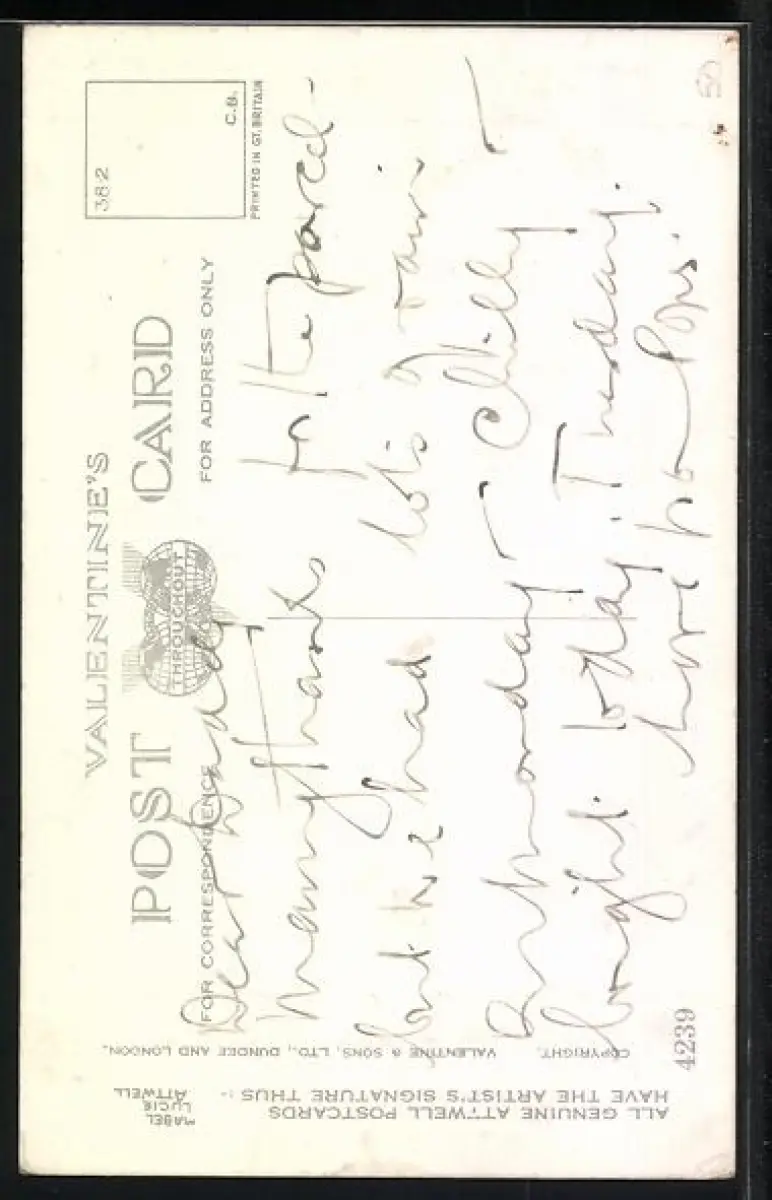 VALENTINE'S
POST CARD
THROUGHOUT
FOR CORRESPONDENCE
FOR ADDRESS ONLY
382
C.B.
PRINTED IN GT. BRITAIN
50
Dear Daddy
Many thanks for the parcel -
but we had lots rain
on Monday Chilly
bright today. Thursday.
here
COPYRIGHT. VALENTINE & SONS, LTD., DUNDEE AND LONDON.
ALL GENUINE ATTWELL POSTCARDS
HAVE THE ARTIST'S SIGNATURE THUS :-
MABEL
LUCIE
ATTWELL
4239